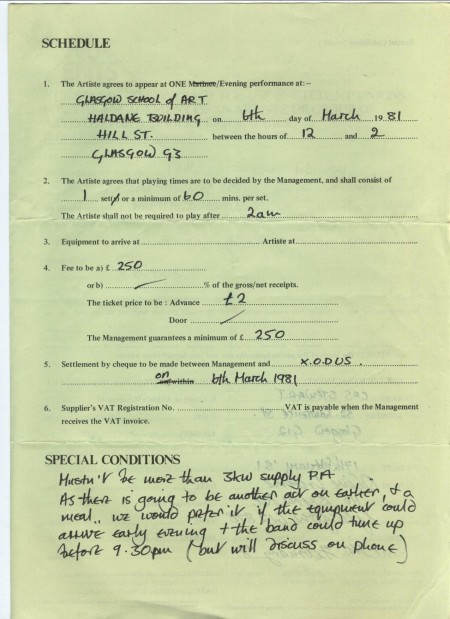 SCHEDULE
1. The Artiste agrees to appear at ONE Matinee/Evening performance at:–
GLASGOW SCHOOL of ART
HALDANE BUILDING on 6th day of March 19 81
HILL ST. between the hours of 12 and 2
GLASGOW G3
2. The Artiste agrees that playing times are to be decided by the Management, and shall consist of
1 set/s or a minimum of 60 mins. per set.
The Artiste shall not be required to play after 2am
3. Equipment to arrive at Artiste at
4. Fee to be a) £ 250
or b) % of the gross/net receipts.
The ticket price to be : Advance £2
Door
The Management guarantees a minimum of £ 250
5. Settlement by cheque to be made between Management and X.O.D.U.S.
on/within 6th March 1981
6. Supplier's VAT Registration No. VAT is payable when the Management
receives the VAT invoice.
SPECIAL CONDITIONS
Mustn't be more than 3kw supply PA.
As there is going to be another act on earlier, + a
meal, we would prefer it if the equipment could
arrive early evening + the band could tune up
before 9.30pm (but will discuss on phone)